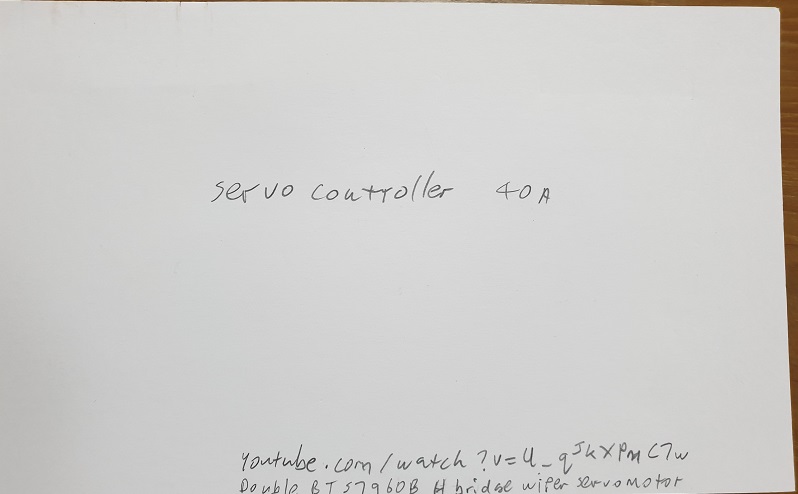 servo controller 40A
Youtube.com/watch?v=U_qJkXPmC7w
Double BTS7960B H bridge wiper servomotor